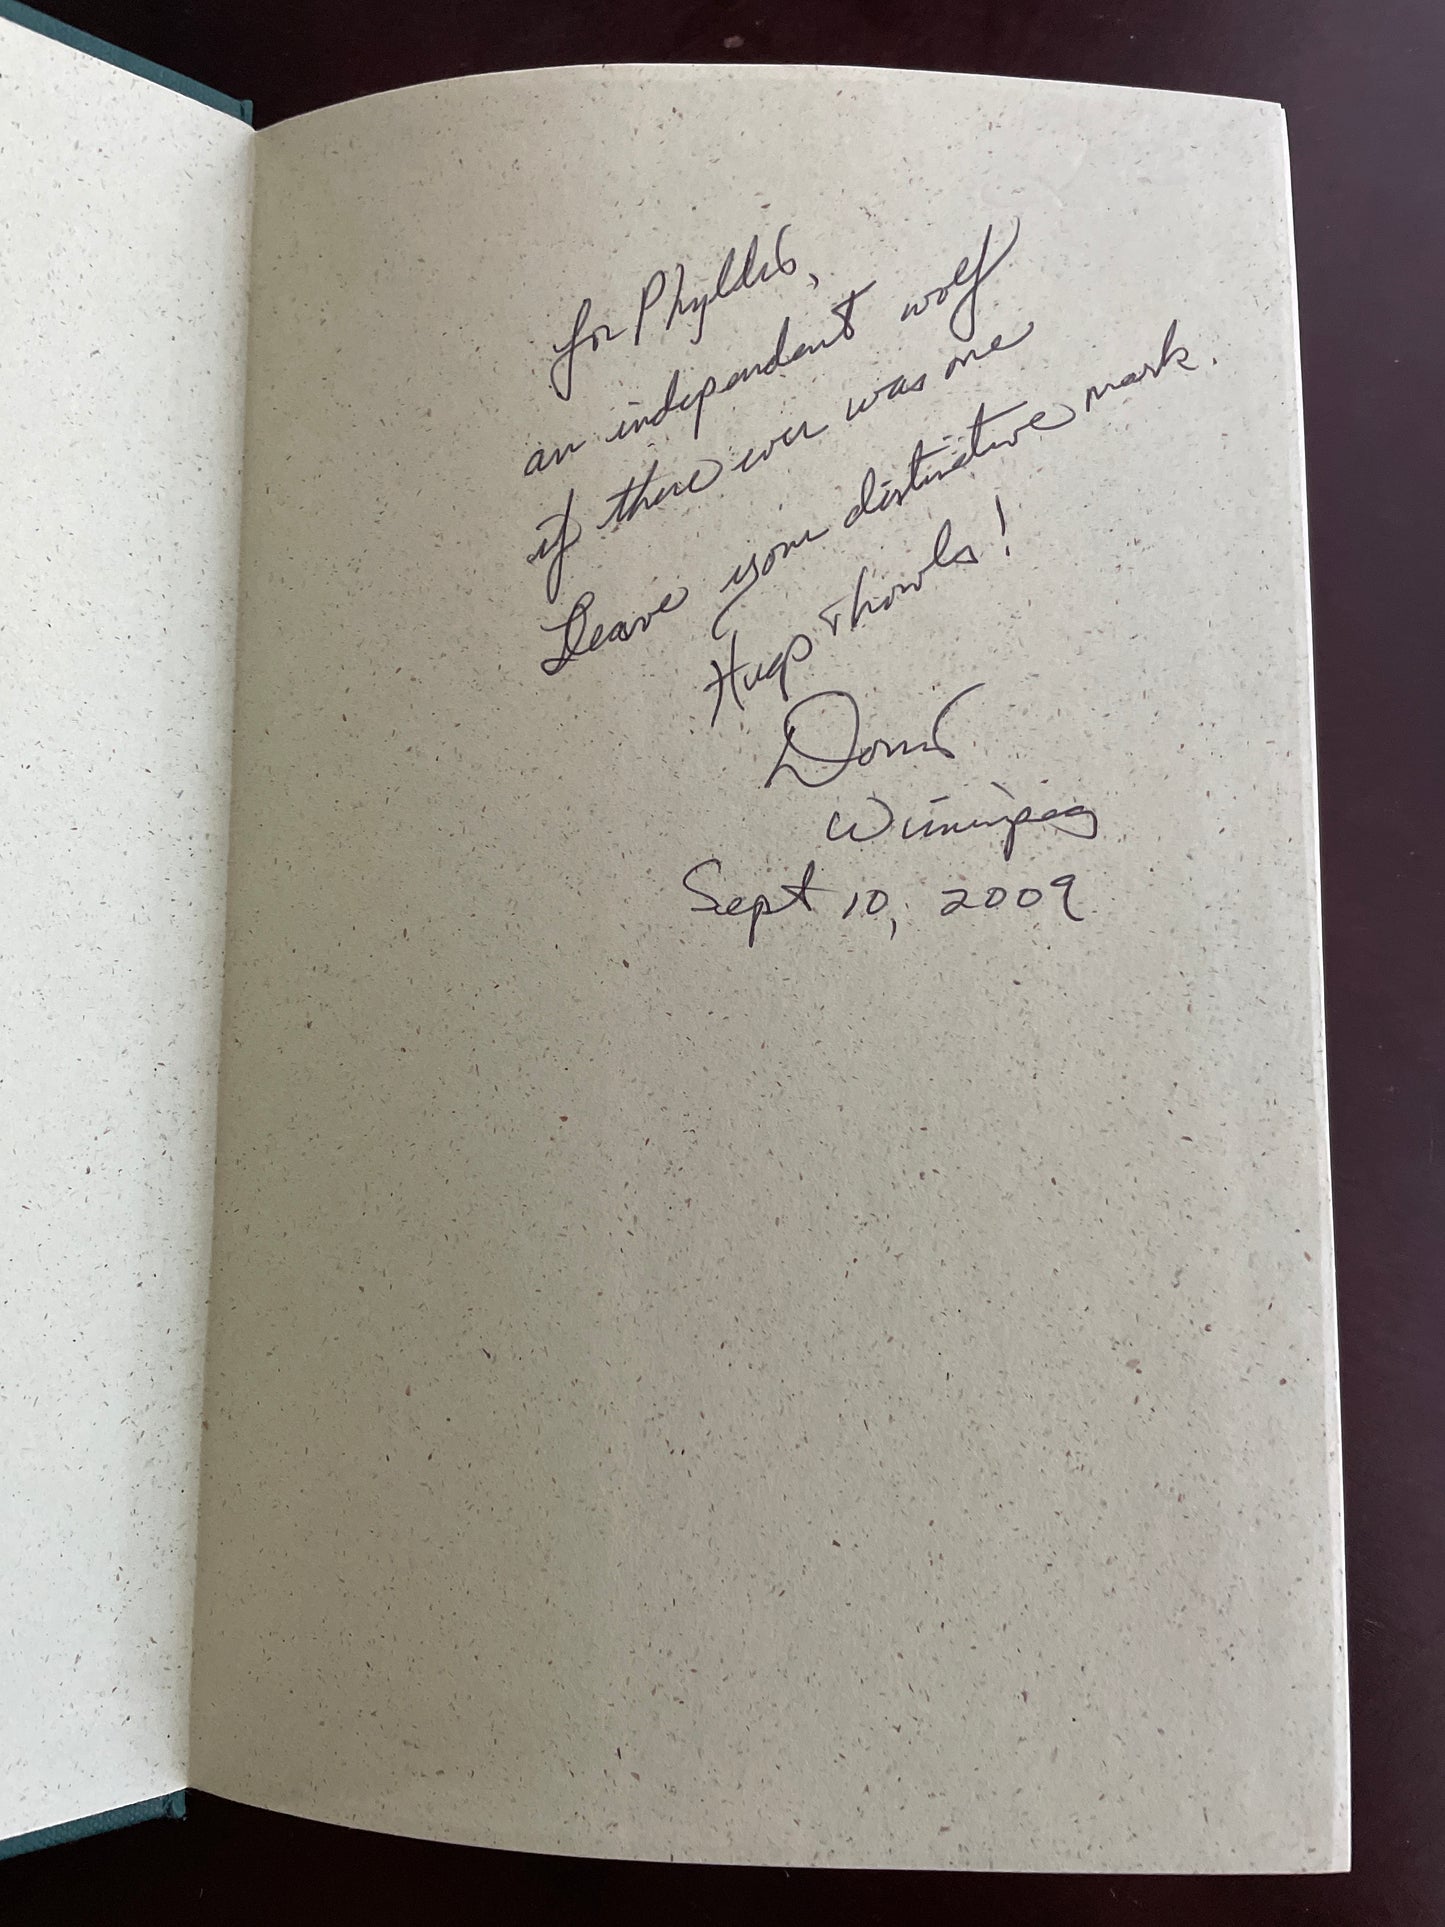 for Phyllis,
an independent wolf
if there ever was one
Leave your distinctive mark.
Hugs & howls!
Doris
Winnipeg
Sept 10, 2009